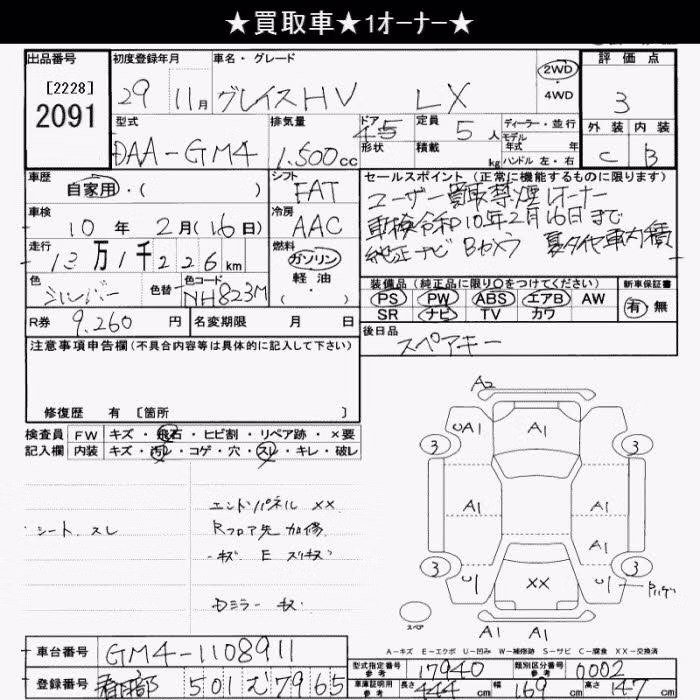 ★買取車★1オーナー★
出品番号 初度登録年月 車名・グレード 2WD 4WD 評価点
[2228]
2091 29 11月 グレイスHV LX 3
型式 排気量 ドア 形状 定員 積載 ディーラー・並行 モデル 年式 年 ハンドル 左・右 外装 内装
DAA-GM4 1.500cc 45 5人 kg C B
車歴 自家用・( ) シフト FAT
セールスポイント(正常に機能するものに限ります)
ユーザー買取 禁煙 1オーナー
車検 10年2月(16日) 冷房 AAC
車検令和10年2月16日まで
走行 13万1千226km 燃料 ガソリン 軽油 ・( )
純正ナビ Bカメラ 夏タイヤ車内積
色 シルバー 色替 色コード NH823M
装備品(純正品に限り○をつけてください) 新車保証書
PS PW ABS エアB AW 有・無
SR ナビ TV カワ
R券 9,260円 名変期限 月 日
後日品 スペアキー
注意事項申告欄(不具合内容等は具体的に記入して下さい)
修復歴 有 [箇所 ]
検査員 FW キズ・飛石・ヒビ割・リペア跡・×要
記入欄 内装 キズ・汚レ・コゲ・穴・スレ・キレ・破レ
エンドパネル XX
シート スレ Rフロア先 加修
キズ E ズリキズ
Dミラー キズ
A2
UA1 A1 A1
3 3
A1 A1
A1
3 3
U1 XX U1
スペア A1 A1
A-キズ E-エクボ U-凹み W-補修跡 S-サビ C-腐食 XX-交換済
車台番号 GM4-1108911
型式指定番号 参考 17940 類別区分番号 参考 0002
登録番号 春日部 501 む 7965
車庫証明用 参考 長さ 444cm 幅 169cm 高さ 147cm